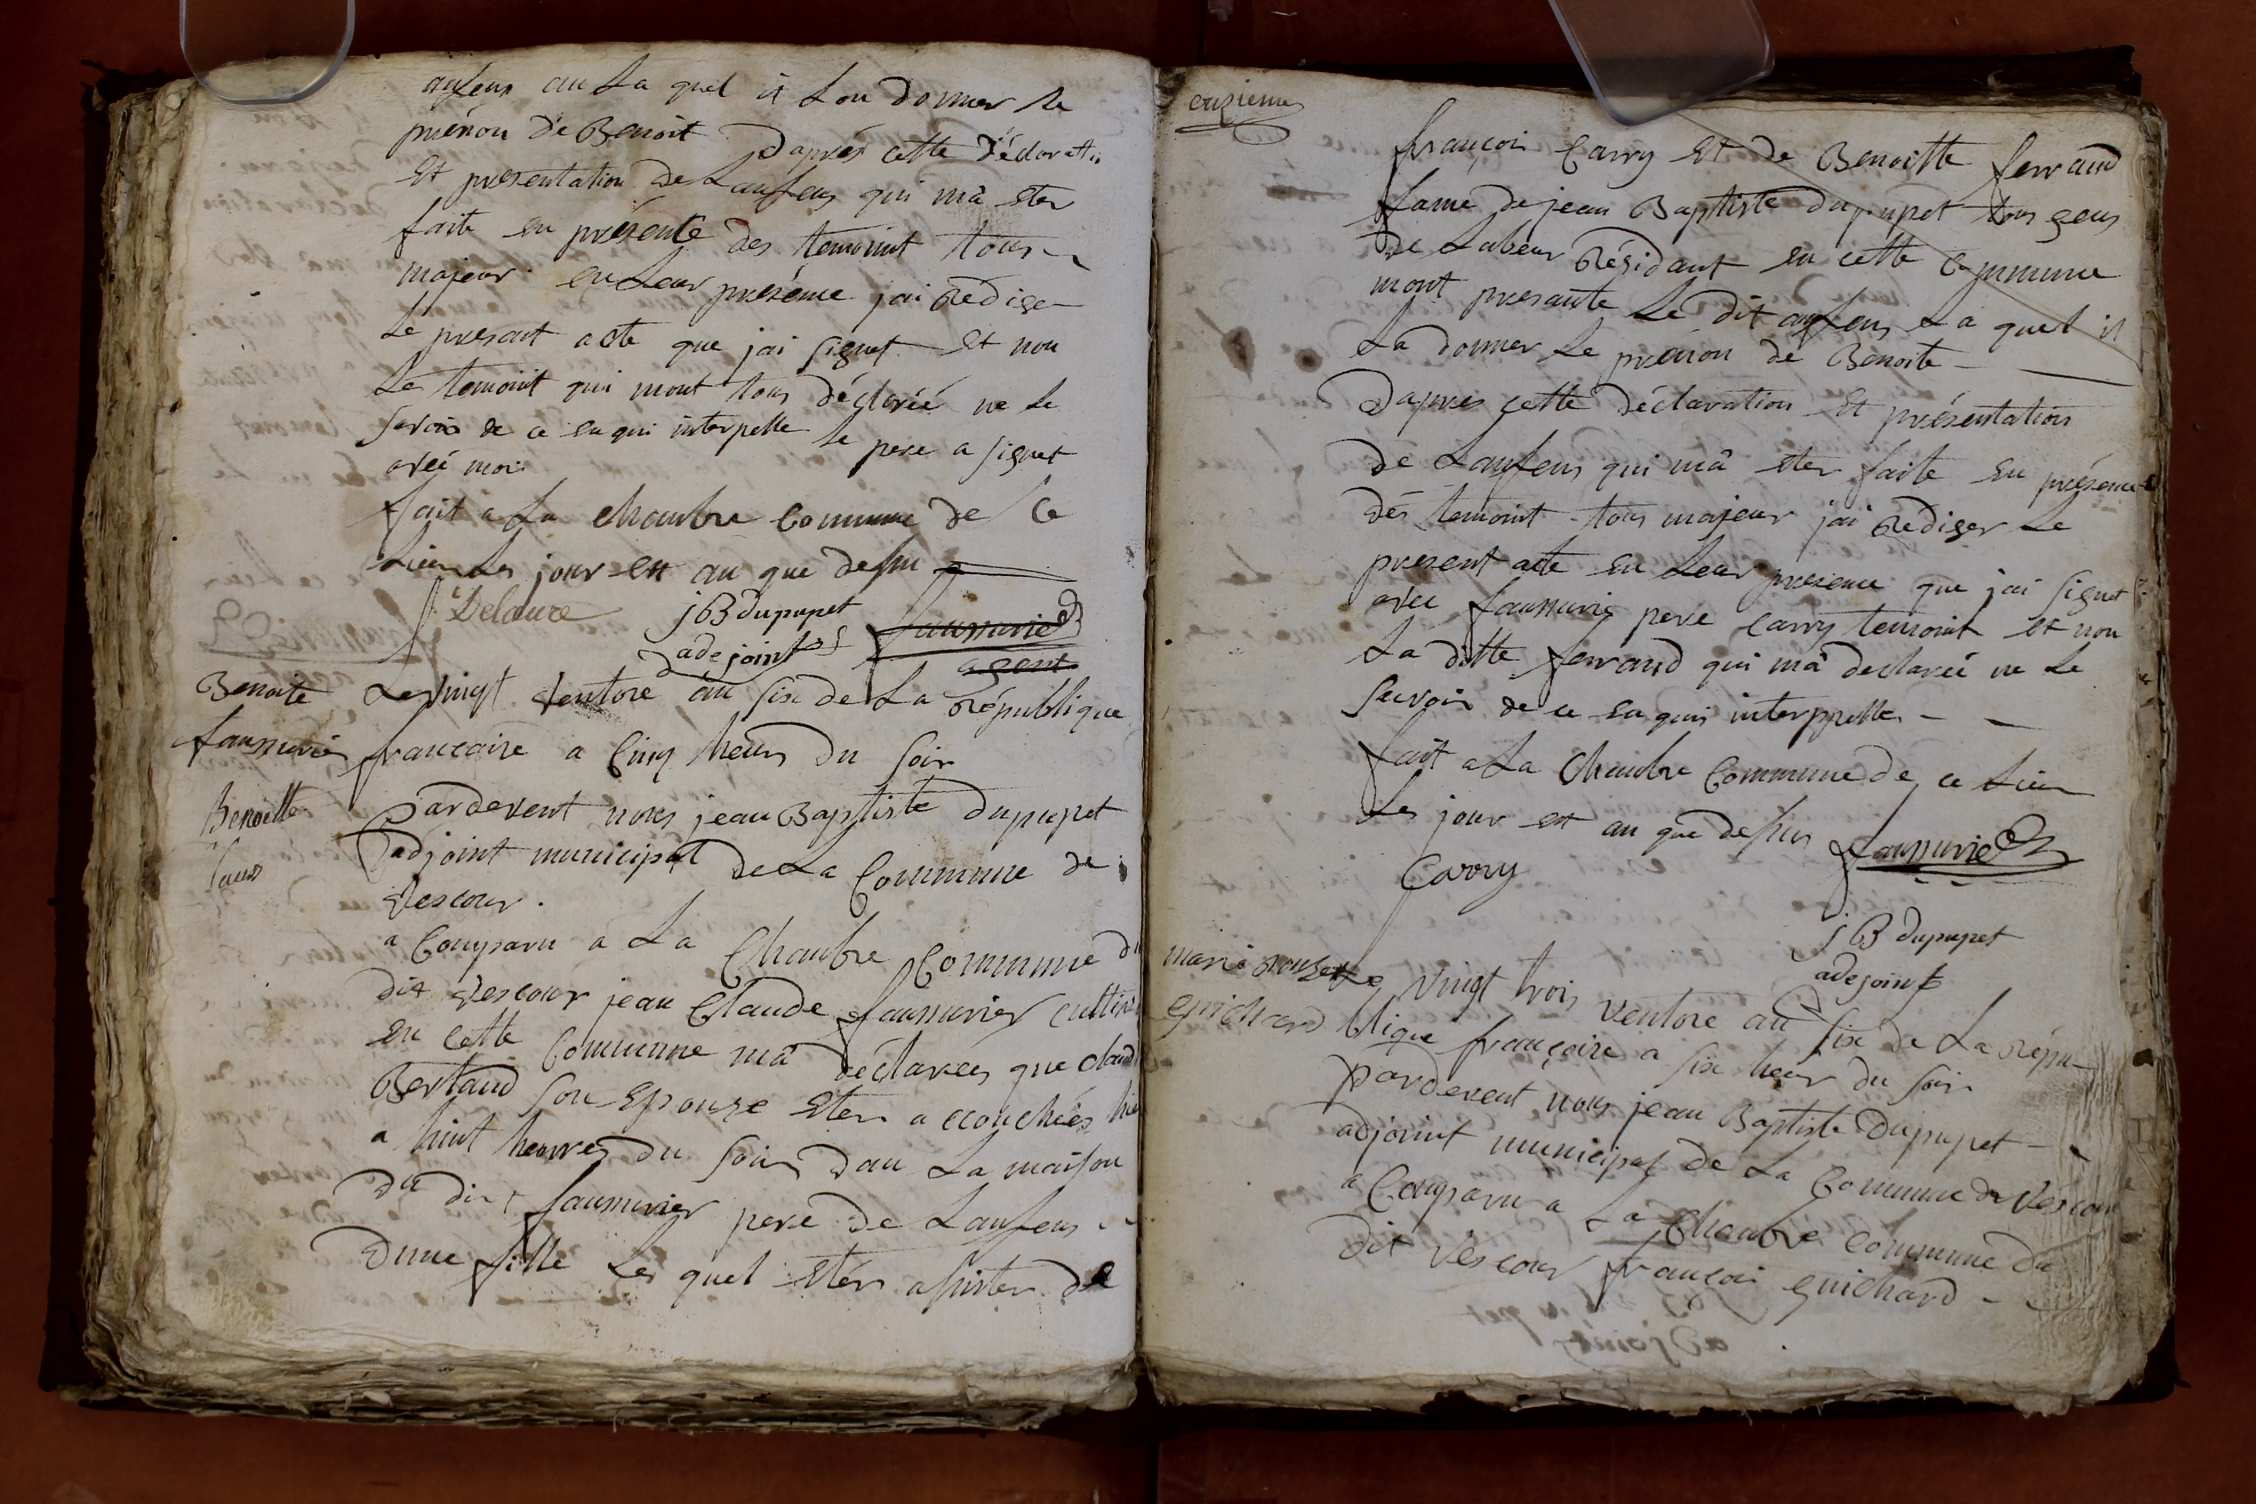 anfens au La quel il Lon donner Le
prénon de Benoit D'aprés cette Déclarattn
Et presentation de Lanfens qui mà eter
faite en présente des temoint tous
majeur en Leur presence jai Rediger
Le presant acte que jai signet Et non
Le temoint qui mont tous déclareé ne Le
savoir de ce enqui interpelle le pere a signet
aveé moi
fait a La chambre Commune de Ce
Lieu Les jour et an que dessu
Delaure
jB dupupet
adejoint
saumurier
agent
Benoite
saumurier
Benoitte
saum
Le vingt Ventose an six de La République
francaise a Cinq heurs du soir
Pardevent nous jean Baptiste dupupet
adjoint municipal de La Commune de
Vescour.
a Comparu a La Chambre Commune du
dit Vescour jean Claude saumurier cultiv
en cette Commune mâ déclareés que claud
Bertand son Epouze eter a ccouchéés hie
a huit heurres du soir dan La maison
Du dit saumurier pere de Lanfens
Dune fille Les quel eter assister de
onzieme
françoin Carry Et de Benoitte ferrand
fame de jean Baptiste dupupet tous gens
de Labeur Résidant en cette Commune
mont presante Le dit anfens La quel il
La donner Le prenon de Benoite
Daprés cette Déclaration Et présentation
de Lanfens qui mâ eter faite en présence
dés temoint tous majeur jai Rediger Le
present acte en Leur presence que jai signet
avec saumurier pere Carry temoint et non
La ditte ferrand qui mâ declareé ne Le
savoir de ce enquis interppelle
fait a La Chambre Commune de ce Lieu
Les jour et an que dessus
saumurier
Carry
jB dupupet
adejoint
marie
guichard
Le vingt trois ventose an six de La répu-
blique françoise a six heur du soir
pardevent nous jean Baptiste Dupupet
adjoint municipal de La Commune de Vescour
a Comparu a La Chambre Commune du
dit Vescour françoi guichard